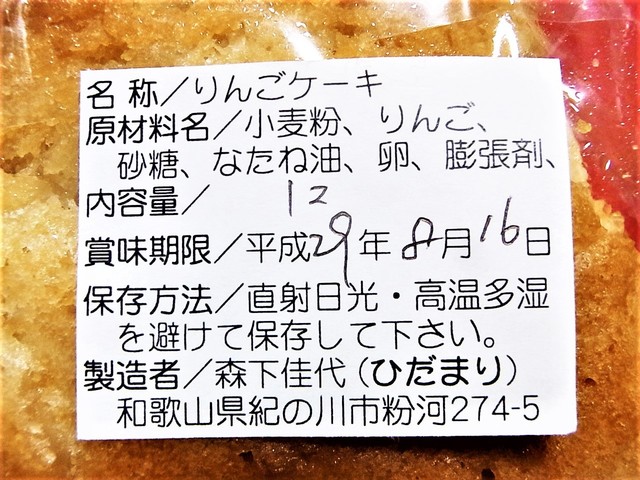 名 称/りんごケーキ
原材料名/小麦粉、りんご、
砂糖、なたね油、卵、膨張剤、
内容量/ 12
賞味期限/平成29年 8月16日
保存方法/直射日光・高温多湿
を避けて保存して下さい。
製造者/森下佳代(ひだまり)
和歌山県紀の川市粉河274-5